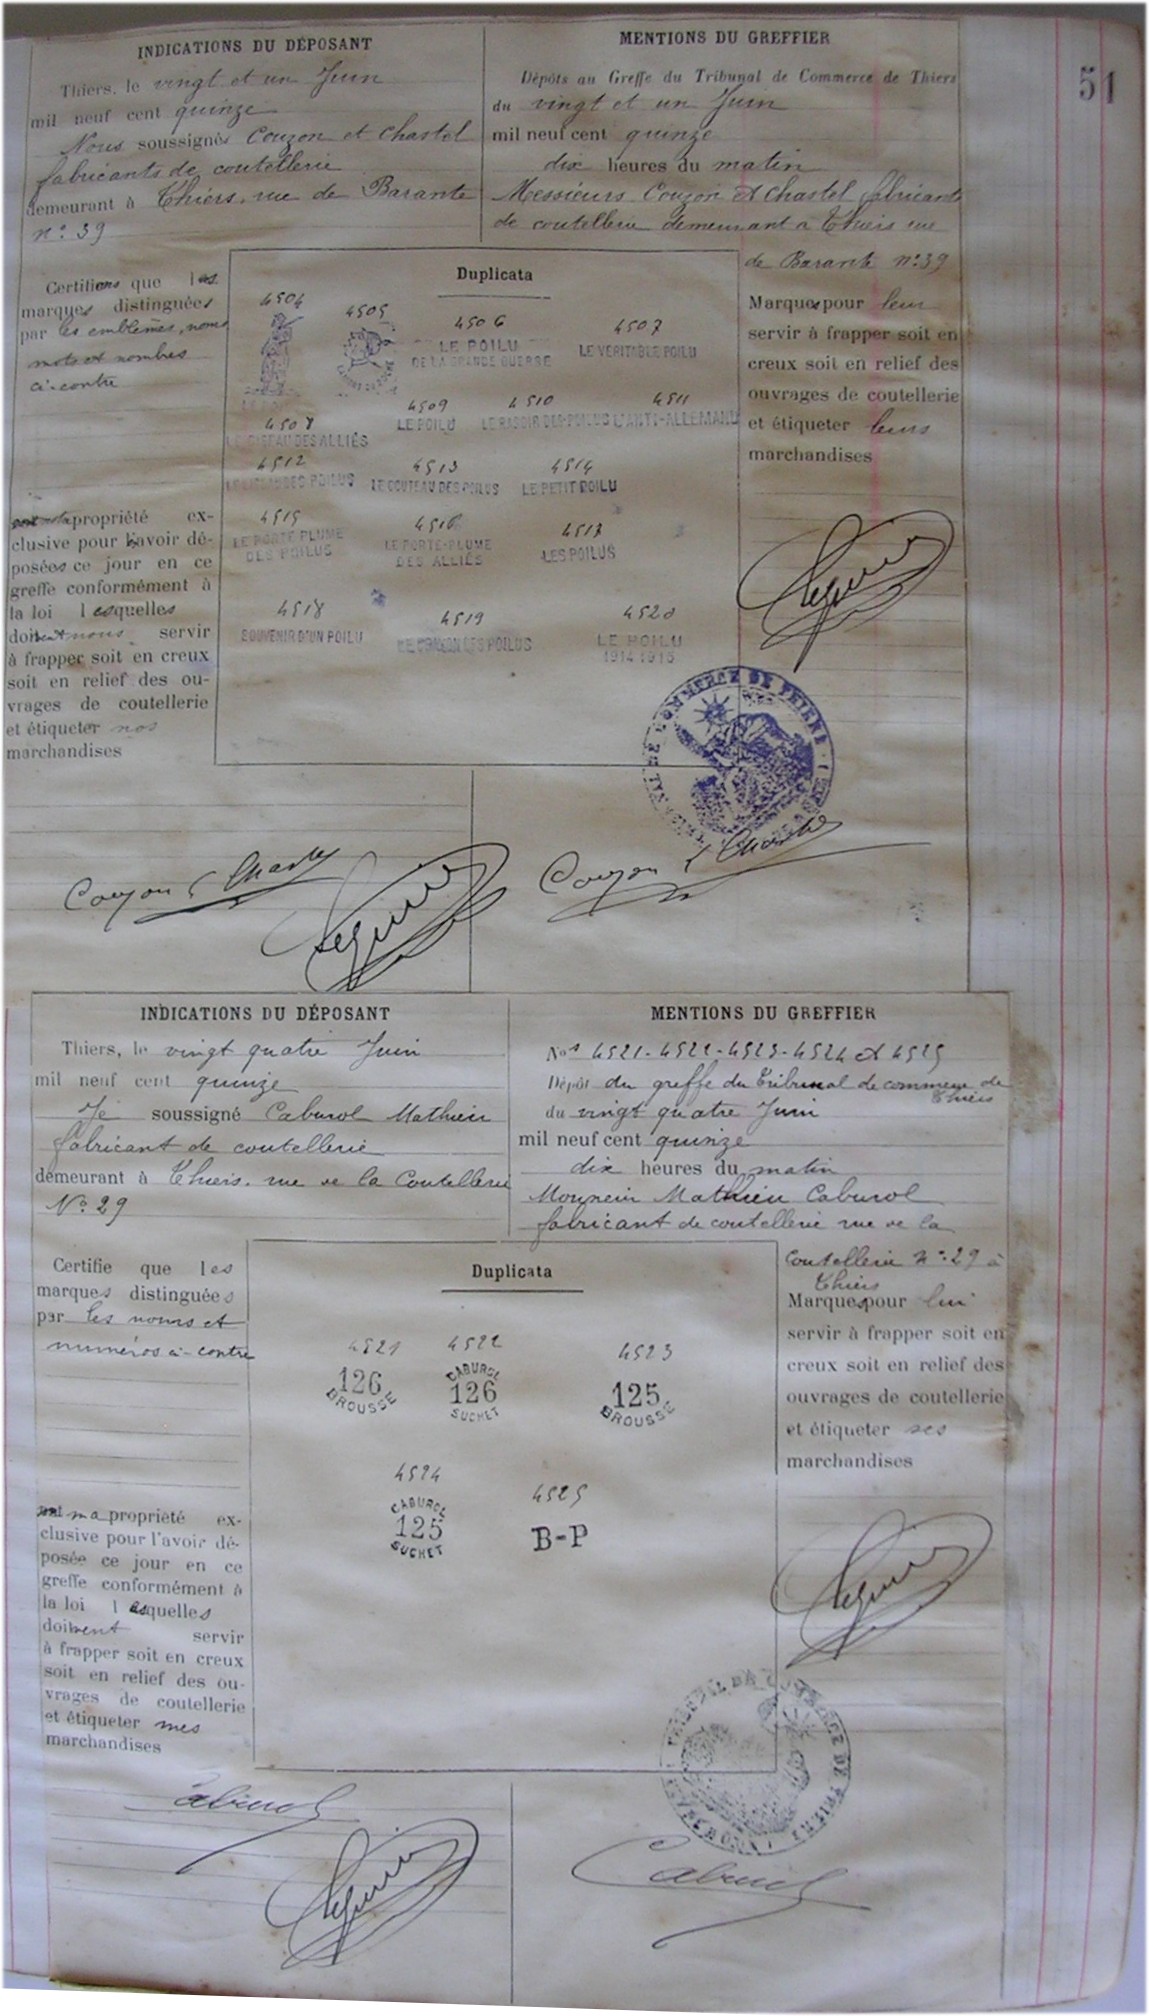 51
INDICATIONS DU DÉPOSANT
Thiers, le vingt et un Juin
mil neuf cent quinze
Nous soussignés Couzon et Chastel
fabricants de coutellerie
demeurant à Thiers, rue de Barante
n° 39
MENTIONS DU GREFFIER
Dépôts au Greffe du Tribunal de Commerce de Thiers
du vingt et un Juin
mil neuf cent quinze
dix heures du matin
Messieurs Couzon et Chastel fabricants
de coutellerie demeurant à Thiers rue
de Barante n° 39
Certifions que les
marques distinguées
par les emblèmes, noms
mots et nombres
ci-contre
sont notre propriété ex-
clusive pour l'avoir dé-
posées ce jour en ce
greffe conformément à
la loi lesquelles
doivent nous servir
à frapper soit en creux
soit en relief des ou-
vrages de coutellerie
et étiqueter nos
marchandises
Duplicata
4504
4505
4506
LE POILU
DE LA GRANDE GUERRE
4507
LE VERITABLE POILU
4508
LE CISEAU DES ALLIÉS
4509
LE POILU
4510
LE RASOIR DES POILUS
4511
L'ANTI-ALLEMAND
4512
DES POILUS
4513
LE COUTEAU DES POILUS
4514
LE PETIT POILU
4515
LE PORTE PLUME
DES POILUS
4516
LE PORTE-PLUME
DES ALLIÉS
4517
LES POILUS
4518
SOUVENIR D'UN POILU
4519
LES POILUS
4520
LE POILU
1914 1915
Marques pour leur
servir à frapper soit en
creux soit en relief des
ouvrages de coutellerie
et étiqueter leurs
marchandises
COMMERCE DE THIERS
Couzon & Chastel
Couzon & Chastel
INDICATIONS DU DÉPOSANT
Thiers, le vingt quatre Juin
mil neuf cent quinze
Je soussigné Caburol Mathieu
fabricant de coutellerie
demeurant à Thiers, rue de la Coutellerie
N° 29
MENTIONS DU GREFFIER
Nos 4521-4522-4523-4524 et 4525
Dépôt du greffe du Tribunal de commerce de
Thiers
du vingt quatre Juin
mil neuf cent quinze
dix heures du matin
Monsieur Mathieu Caburol
fabricant de coutellerie rue de la
Coutellerie n° 29 à
Thiers
Certifie que les
marques distinguées
par les noms et
numéros ci-contre
sont ma propriété ex-
clusive pour l'avoir dé-
posée ce jour en ce
greffe conformément à
la loi lesquelles
doivent servir
à frapper soit en creux
soit en relief des ou-
vrages de coutellerie
et étiqueter mes
marchandises
Duplicata
4521
126
BROUSSE
4522
CABUROL
126
SUCHET
4523
125
BROUSSE
4524
CABUROL
125
SUCHET
4525
B-P
Marques pour lui
servir à frapper soit en
creux soit en relief des
ouvrages de coutellerie
et étiqueter ses
marchandises
TRIBUNAL DE COMMERCE DE THIERS
Caburol
Caburol